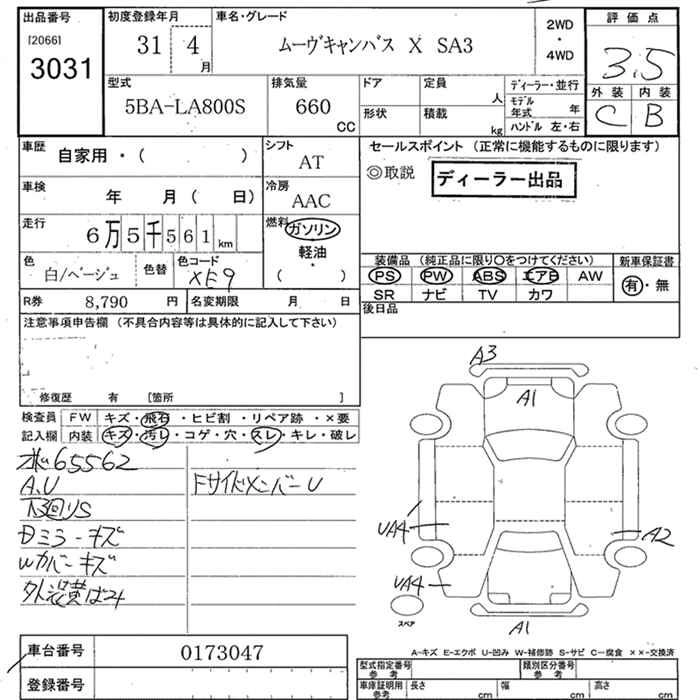 出品番号 初度登録年月 車名・グレード 2WD ・ 4WD 評価点
[2066]
3031 31 4月 ムーヴキャンバス X SA3 3.5
外装 内装
C B
型式 排気量 ドア 定員 人 ディーラー・並行
5BA-LA800S 660 CC 形状 積載 kg モデル年式 年
ハンドル 左・右
車歴 自家用・( ) シフト AT セールスポイント (正常に機能するものに限ります)
◎取説 ディーラー出品
車検 年 月 ( 日) 冷房 AAC
走行 6万5千561km 燃料 ガソリン
軽油
・
( )
色 白/ベージュ 色替 色コード XE9
装備品 (純正品に限り○をつけてください) 新車保証書
PS PW ABS エアB AW 有・無
SR ナビ TV カワ
R券 8,790 円 名変期限 月 日
後日品
注意事項申告欄 (不具合内容等は具体的に記入して下さい)
修復歴 有 [箇所 ]
検査員 FW キズ・飛石・ヒビ割・リペア跡・×要
記入欄 内装 キズ・汚レ・コゲ・穴・スレ・キレ・破レ
65562
A.U FサイドメンバーU
下回りS
Dミラーキズ
Wカバーキズ
A3
A1
UA4
A2
UA4
スペア
A1
車台番号 0173047
登録番号
A-キズ E-エクボ U-凹み W-補修跡 S-サビ C-腐食 ××-交換済
型式指定番号 参考 類別区分番号 参考
車庫証明用 参考 長さ cm 幅 cm 高さ cm